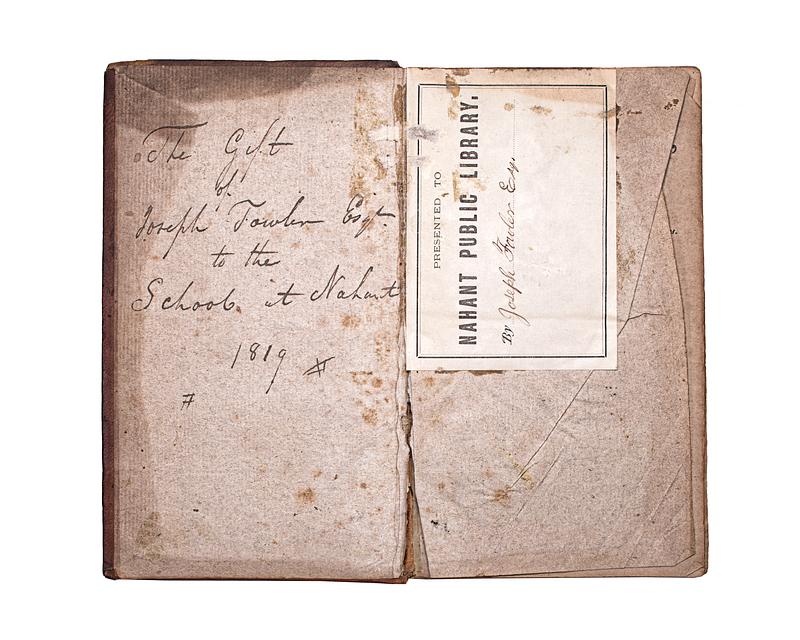 The Gift
of
Joseph Fowler Esqr
to the
School at Nahant
1819
7
PRESENTED TO
NAHANT PUBLIC LIBRARY,
By Joseph Fowler Esq.